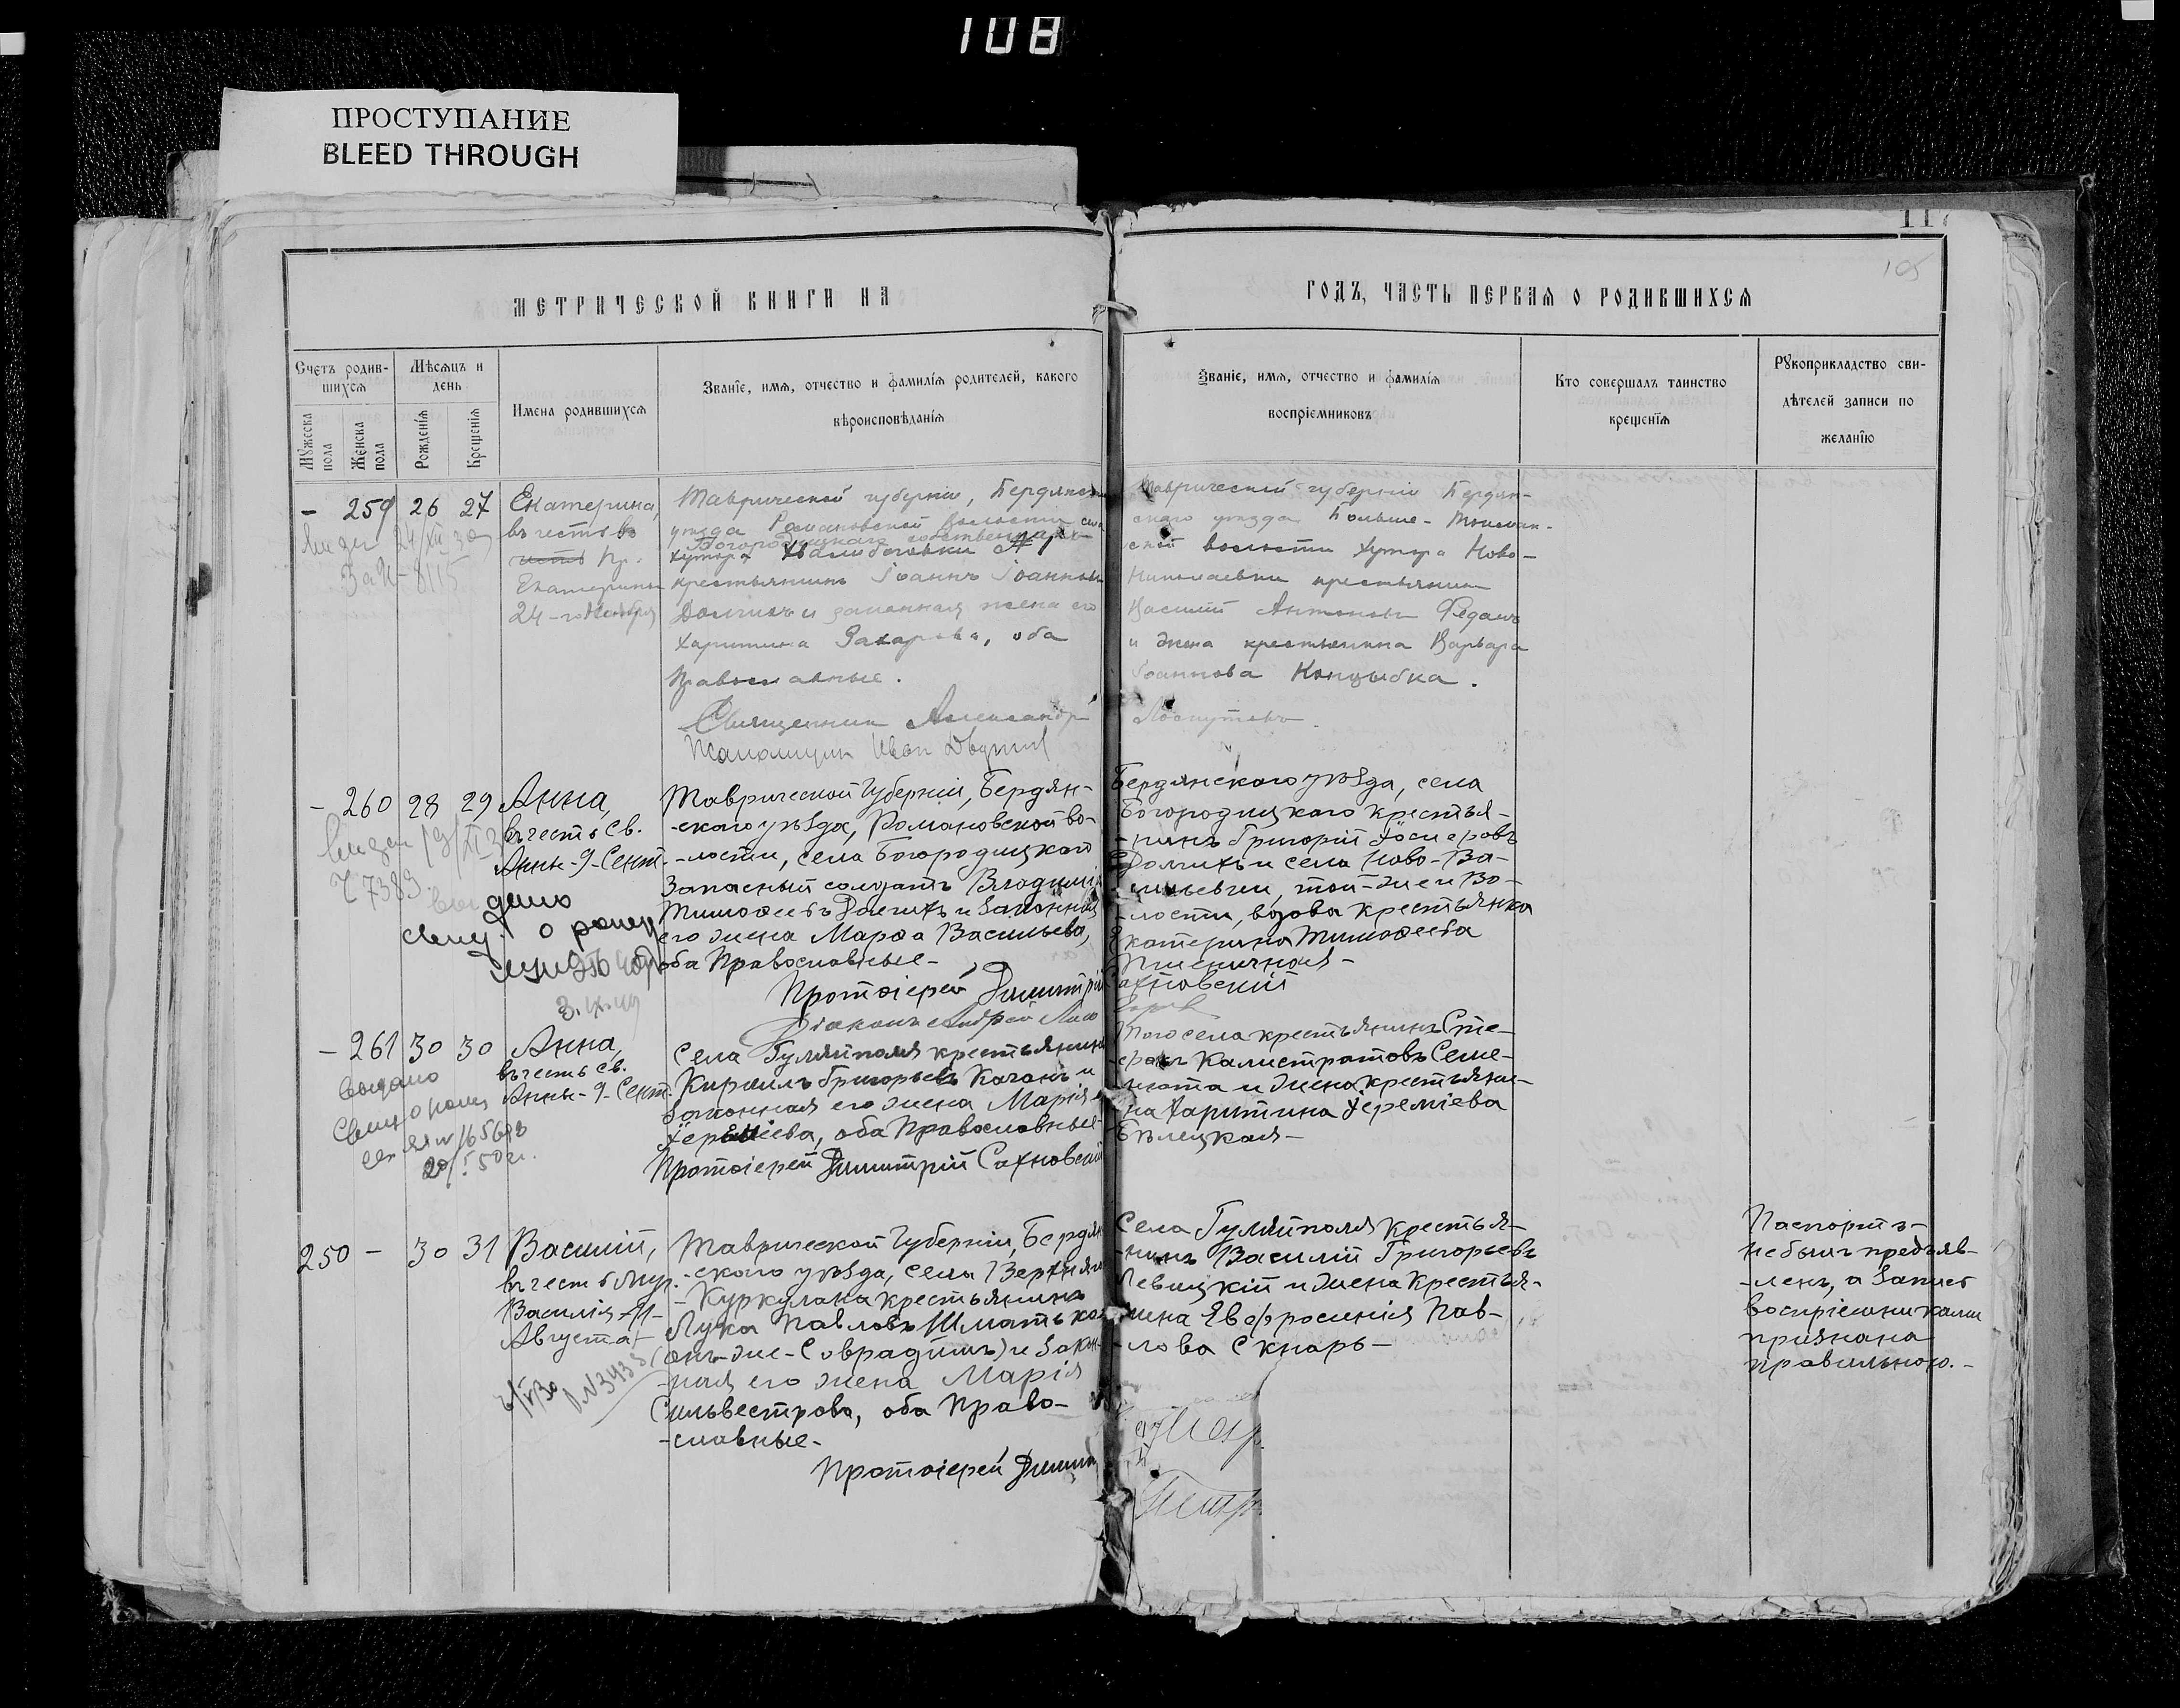 108
ПРОСТУПАНИЕ
BLEED THROUGH
11
105
МЕТРИЧЕСКОЙ КНИГИ НА
ГОДЪ, ЧАСТЬ ПЕРВАЯ О РОДИВШИХСЯ
Счетъ родив-
шихся
Мужеска пола
Женска пола
Мѣсяцъ и
день
Рожденія
Крещенія
Имена родившихся
Званіе, имя, отчество и фамилія родителей, какого
вѣроисповѣданія
Званіе, имя, отчество и фамилія
воспріемниковъ
Кто совершалъ таинство
крещенія
Рукоприкладство сви-
дѣтелей записи по
желанію
- 259 26 27
Екатерина,
въ честь
Екатерины
24-го Ноября
24/XII 30
8115
Таврической губерніи, Бердянск
уѣзда Романовской Волости села
Богородицкаго
хутора
крестьянинъ Іоаннъ Іоанновъ
Долгихъ и законная жена его
Харитина Захарова, оба
Православные.
Священник Александр
Иван
Таврической губерніи Бердян-
скаго уѣзда Больше-Токмак-
ской волости хутора Ново-
Николаевки крестьянин
Василій Антонов Федан
и жена крестьянина Варвара
Іоаннова Концыбка.
- 260 28 29
Анна,
въ честь Св.
Анны-9-Сент.
7389
выдано
3.IX.49
Таврической Губерніи, Бердян-
-скаго уѣзда, Романовской во-
-лости, села Богородицкаго
Запасный солдатъ Владимір
Тимоѳеевъ Долгихъ и законная
его жена Марѳа Васильева,
оба Православные-
Протоіерей Димитрій Сахновскій
Діаконъ Андрей
Бердянскаго уѣзда, села
Богородицкаго крестья-
-нинъ Григорій
Долгихъ и села Ново-Ва-
-сильевки, той-же и Во-
-лости, вдова крестьянка
Екатерина Тимоѳеева
Пшеничная-
- 261 30 30
Анна,
въ честь Св.
Анны-9-Сент.
выдано
20/I 50 г.
Села Гуляйполя крестьянинъ
Кириллъ Григорьевъ Качанъ и
законная его жена Марія
оба Православные-
Протоіерей Димитрій Сахновскій
Того села крестьянинъ Сте-
-фанъ Калистратовъ Семе-
-нюта и жена крестьяни-
-на Харитина Іереміева
Бѣлецкая-
250 - 30 31
Василій,
въ честь Муч.
Василія-11-
Августа-
N 3438
Таврической Губерніи, Бердян
-скаго уѣзда, села Верхняго
-Куркулака крестьянинъ
Лука Павловъ Шматько
(онъ-же-Соврадимъ) и закон-
-ная его жена Марія
Сильвестрова, оба Право-
-славные-
Протоіерей Димит
Села Гуляйполя крестья-
-нинъ Василій Григорьевъ
Левицкій и жена крестья-
-нина Евфросинія Пав-
-лова Скнарь-
Паспортъ-
не былъ предъяв-
-ленъ, а запись
воспріемниками
признана
правильною.-